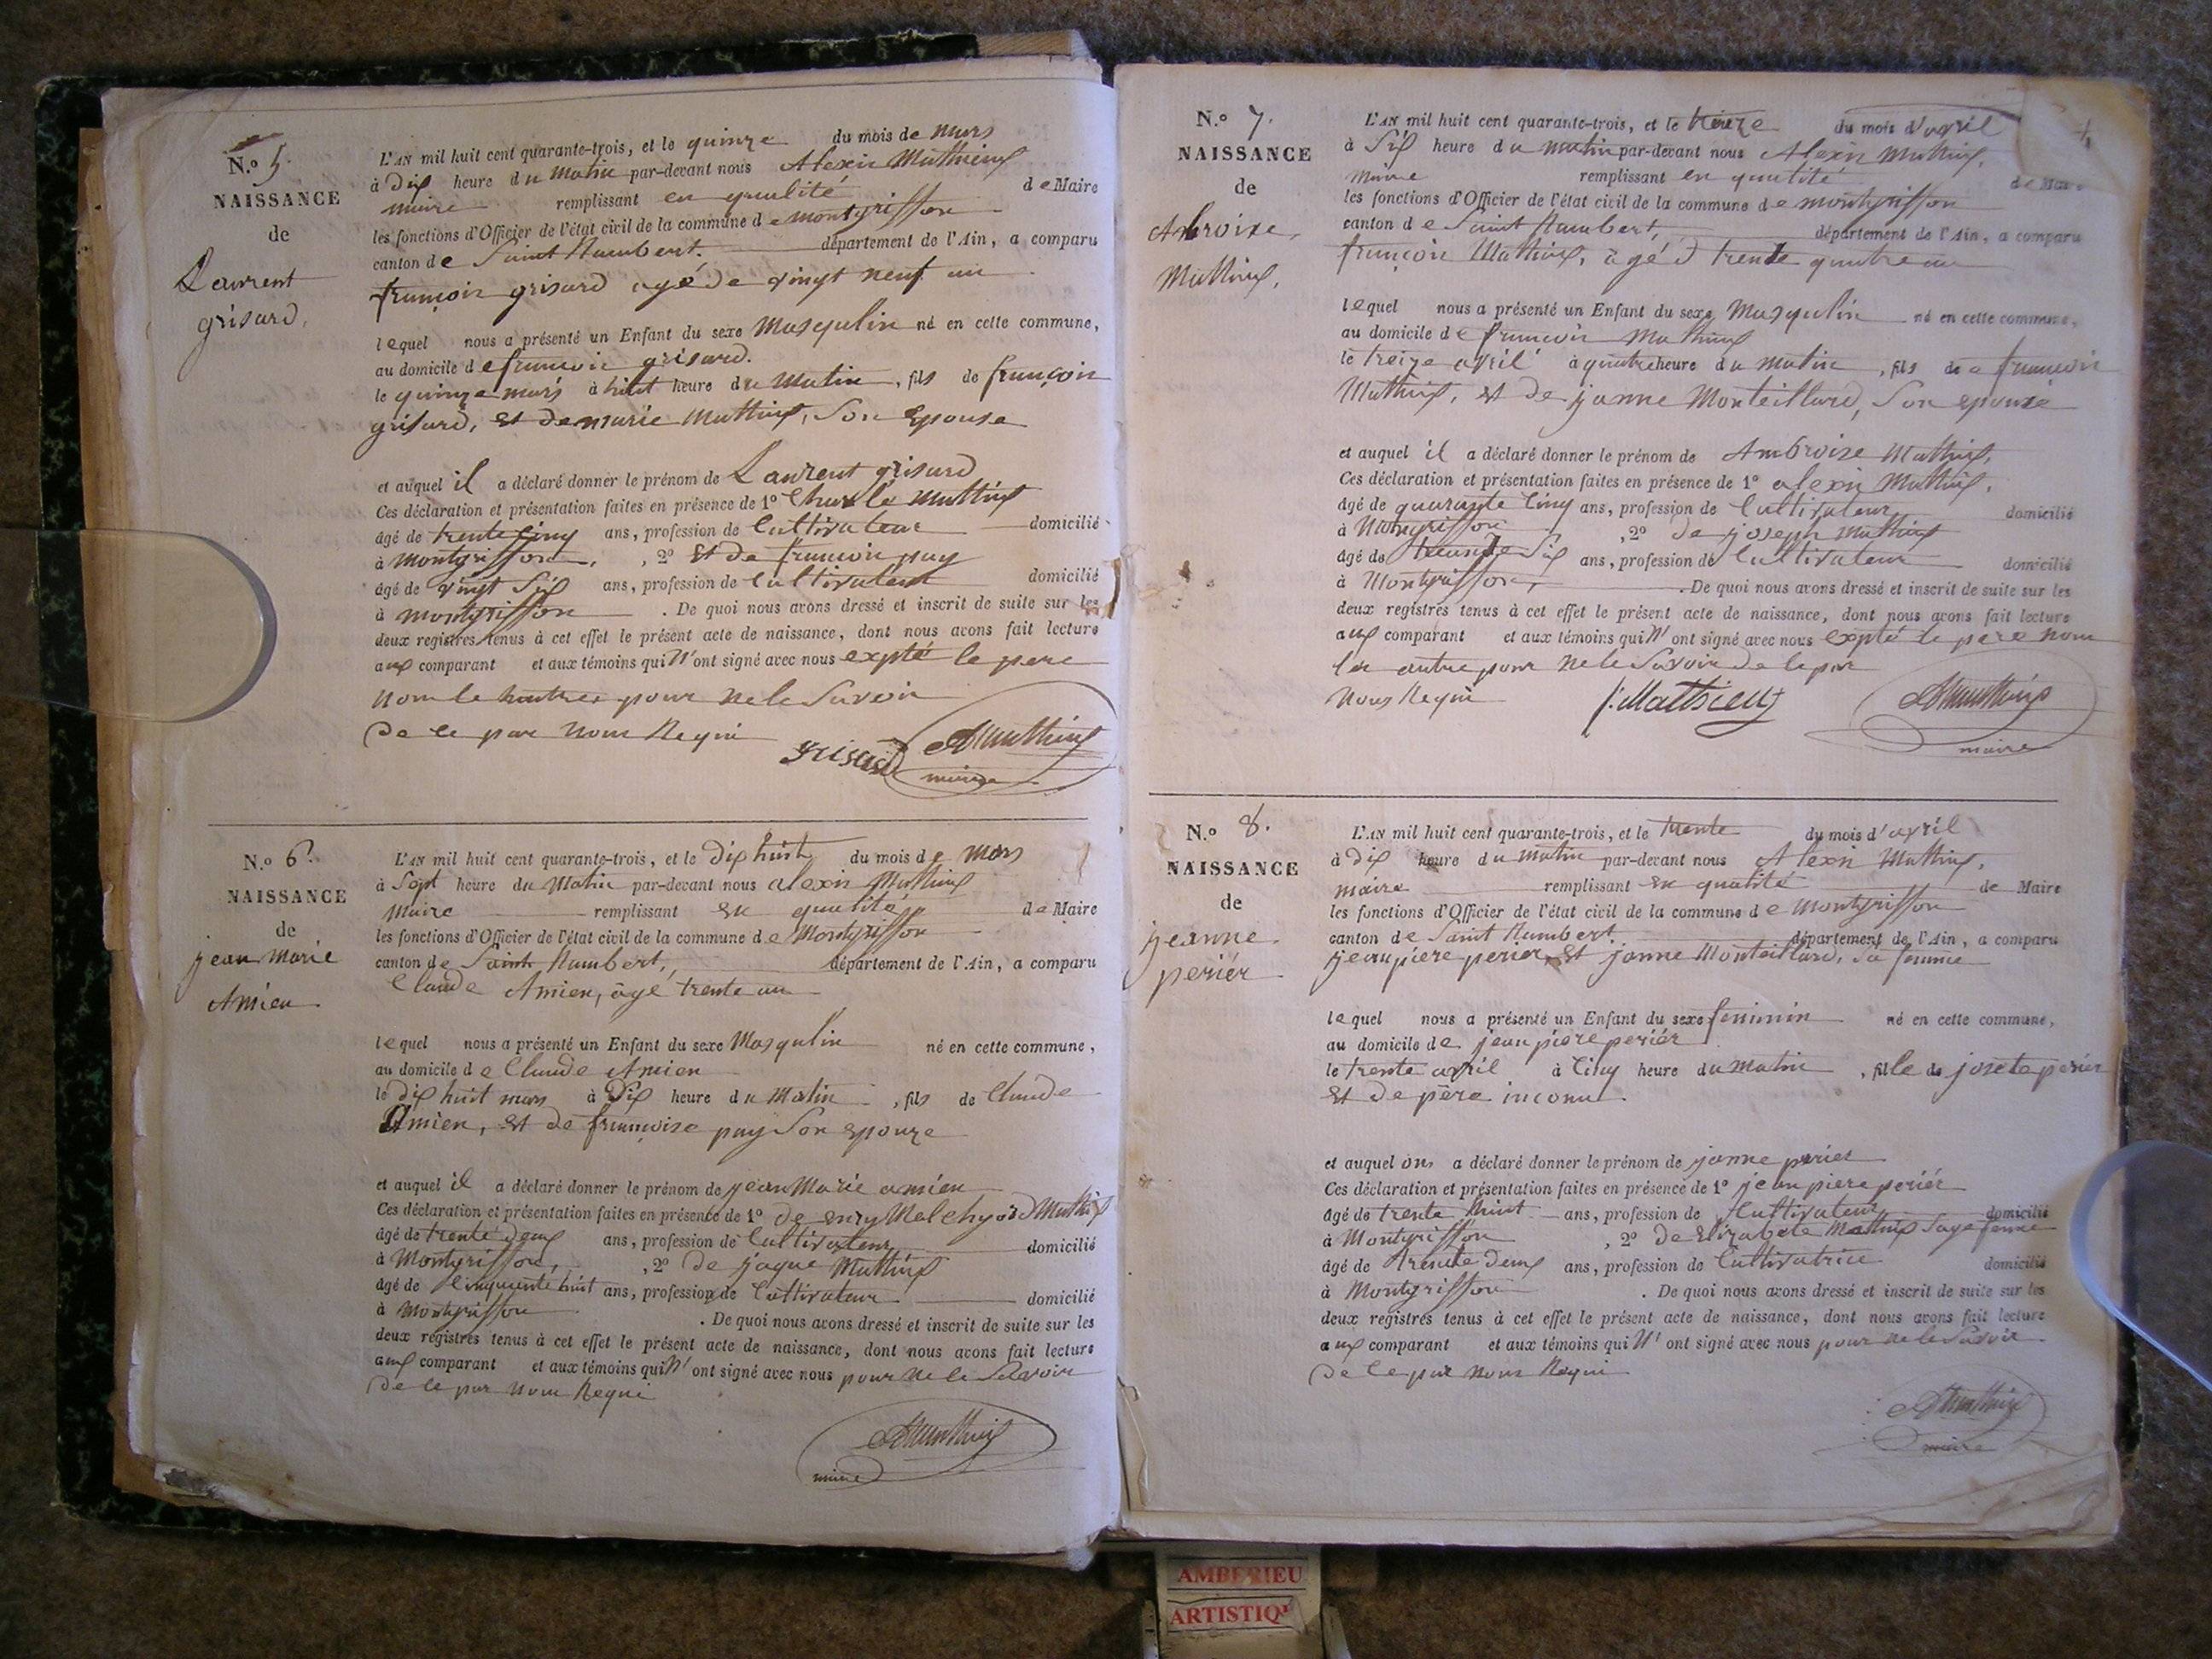 N.o 5.
NAISSANCE
de
Laurent
grisard.
L'AN mil huit cent quarante-trois, et le quinze du mois de mars
à dix heure du matin par-devant nous Alexis Mathieux
maire remplissant en qualité de Maire
les fonctions d'Officier de l'état civil de la commune de montgriffon
canton de Saint Rambert. département de l'Ain, a comparu
françois grisard agé de vingt neuf an
lequel nous a présenté un Enfant du sexe Masqulin né en cette commune,
au domicile de françois grisard.
le quinze mars à huit heure du Matin, fils de françois
grisard, et de marie Mathieux, Son Epouse
et auquel il a déclaré donner le prénom de Laurent grisard
Ces déclaration et présentation faites en présence de 1o Charle Mathieux
âgé de trente cinq ans, profession de Cultivateur domicilié
à montgriffon, 2o et de françois puy
âgé de vingt Six ans, profession de Cultivateur domicilié
à montgriffon. De quoi nous avons dressé et inscrit de suite sur les
deux registres tenus à cet effet le présent acte de naissance, dont nous avons fait lecture
aux comparant et aux témoins qui N'ont signé avec nous expté le pere
non le hautres pour ne le Savoir
de ce par nous Requi
grisard AMathieux
maire
N.o 6.
NAISSANCE
de
jean Marie
Amieu
L'AN mil huit cent quarante-trois, et le dix huit du mois de mars
à Sept heure du Matin par-devant nous alexis Mathieux
Maire remplissant en qualité de Maire
les fonctions d'Officier de l'état civil de la commune de Montgriffon
canton de Saint Rambert, département de l'Ain, a comparu
Claude Amieu, âgé trente an
lequel nous a présenté un Enfant du sexe Masqulin né en cette commune,
au domicile de Claude Amieu
le dix huit mars à Six heure du Matin, fils de Claude
Amieu, et de françoise puy Son epouze
et auquel il a déclaré donner le prénom de jean Marie amieu
Ces déclaration et présentation faites en présence de 1o de enry Melchyord Mathieux
âgé de trente deux ans, profession de Cultivateur domicilié
à Montgriffon, 2o de jaque Mathieux
âgé de Cinquante huit ans, profession de Cultivateur domicilié
à Montgriffon. De quoi nous avons dressé et inscrit de suite sur les
deux registres tenus à cet effet le présent acte de naissance, dont nous avons fait lecture
aux comparant et aux témoins qui N'ont signé avec nous pour ne le Savoir
de ce par nous Requi
AMathieux
maire
N.o 7.
NAISSANCE
de
Ambroise,
Mathieux,
L'AN mil huit cent quarante-trois, et le treize du mois d'avril
à Six heure du matin par-devant nous Alexis Mathieux,
maire remplissant en qualité de Maire
les fonctions d'Officier de l'état civil de la commune de montgriffon
canton de Saint Rambert, département de l'Ain, a comparu
françois Mathieux, âgé d trente quatre an
lequel nous a présenté un Enfant du sexe Masqulin né en cette commune,
au domicile de françois Mathieux
le treize avril à quatre heure du matin, fils de françois
Mathieux, et de janne Monteillard, Son epouse
et auquel il a déclaré donner le prénom de Ambroise Mathieux,
Ces déclaration et présentation faites en présence de 1o alexis Mathieux,
âgé de quarante Cinq ans, profession de Cultivateur domicilié
à Montgriffon, 2o de joseph Mathieux
âgé de Six ans, profession de Cultivateur domicilié
à Montgriffon, De quoi nous avons dressé et inscrit de suite sur les
deux registres tenus à cet effet le présent acte de naissance, dont nous avons fait lecture
aux comparant et aux témoins qui N'ont signé avec nous expté le pere non
les autre pour ne le Savoir de ce par
nous Requi f. Mathieux AMathieux
maire
N.o 8.
NAISSANCE
de
jeanne
periér
L'AN mil huit cent quarante-trois, et le trente du mois d'avril
à dix heure du matin par-devant nous Alexis Mathieux,
maire remplissant en qualité de Maire
les fonctions d'Officier de l'état civil de la commune de montgriffon
canton de Saint Rambert département de l'Ain, a comparu
jean piere perier, et janne Monteillard, Sa femme
lequel nous a présenté un Enfant du sexe feminin né en cette commune,
au domicile de jean piere periér
le trente avril à Cinq heure du matin, fille de josete periér
et de père inconu
et auquel ons a déclaré donner le prénom de janne periér
Ces déclaration et présentation faites en présence de 1o jean piere periér
âgé de trente huit ans, profession de Cultivateur domicilié
à Montgriffon, 2o de Elizabete Mathieux Sage femme
âgé de trente deux ans, profession de Cultivatrice domicilié
à Montgriffon. De quoi nous avons dressé et inscrit de suite sur les
deux registres tenus à cet effet le présent acte de naissance, dont nous avons fait lecture
aux comparant et aux témoins qui N'ont signé avec nous pour ne le Savoir
de ce par nous Requi
AMathieux
maire
AMBERIEU
ARTISTIQU